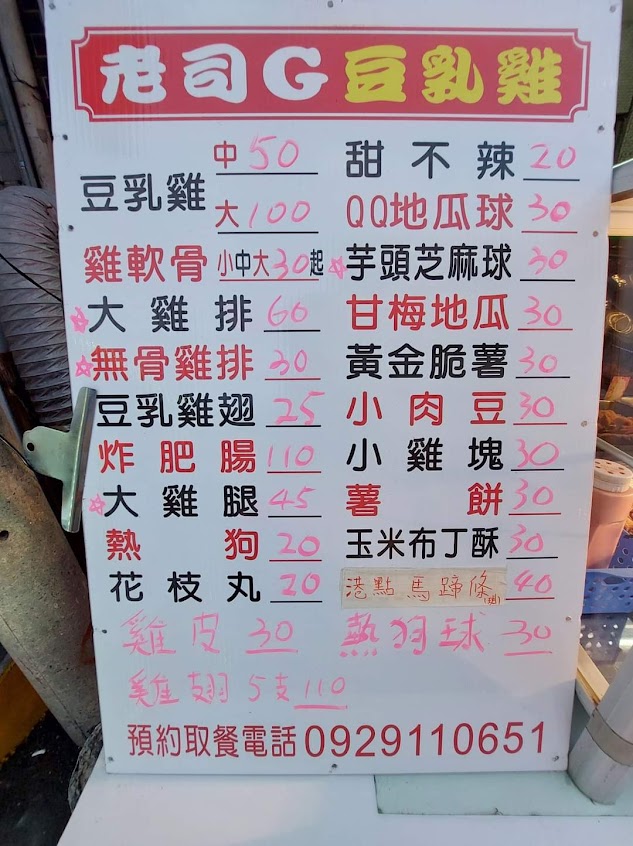 老司G豆乳雞
豆乳雞 中 50
大 100
雞軟骨 小中大30起
☆大雞排 60
☆無骨雞排 30
豆乳雞翅 25
炸肥腸 110
☆大雞腿 45
熱狗 20
花枝丸 20
雞皮 30
雞翅 5支 110
甜不辣 20
QQ地瓜球 30
☆芋頭芝麻球 30
甘梅地瓜 30
黃金脆薯 30
小肉豆 30
小雞塊 30
薯餅 30
玉米布丁酥 30
港點馬蹄條 40
熱狗球 30
預約取餐電話0929110651